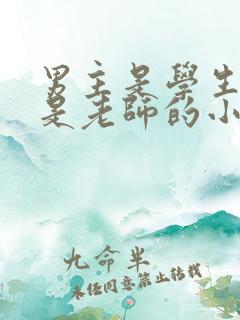 男主是學生
是老師的小
九命半
未經同意禁止轉載